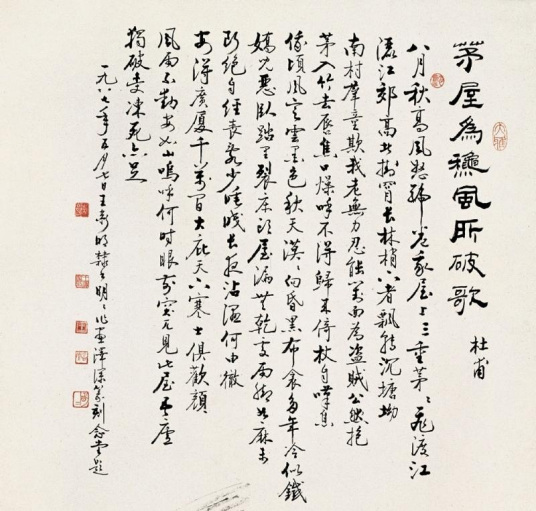 茅屋為穐風所破歌
杜甫
八月秋高風怒號卷我屋上三重茅〻飛渡江
灑江郊高者掛罥長林梢下者飄轉沉塘坳
南村羣童欺我老無力忍能對面為盜賊公然抱
茅入竹去唇焦口燥呼不得歸來倚杖自嘆息
俄頃風定雲墨色秋天漠〻向昏黑布衾多年冷似鐵
嬌兒惡臥踏裏裂床頭屋漏無乾處雨腳如麻未
斷絕自經喪亂少睡眠長夜沾濕何由徹
安得廣厦千萬間大庇天下寒士俱歡顏
風雨不動安如山嗚呼何時眼前突兀見此屋吾廬
獨破受凍死亦足
一九八七年五月七日王壽明隸今明〻作畫澤深篆刻念堂題